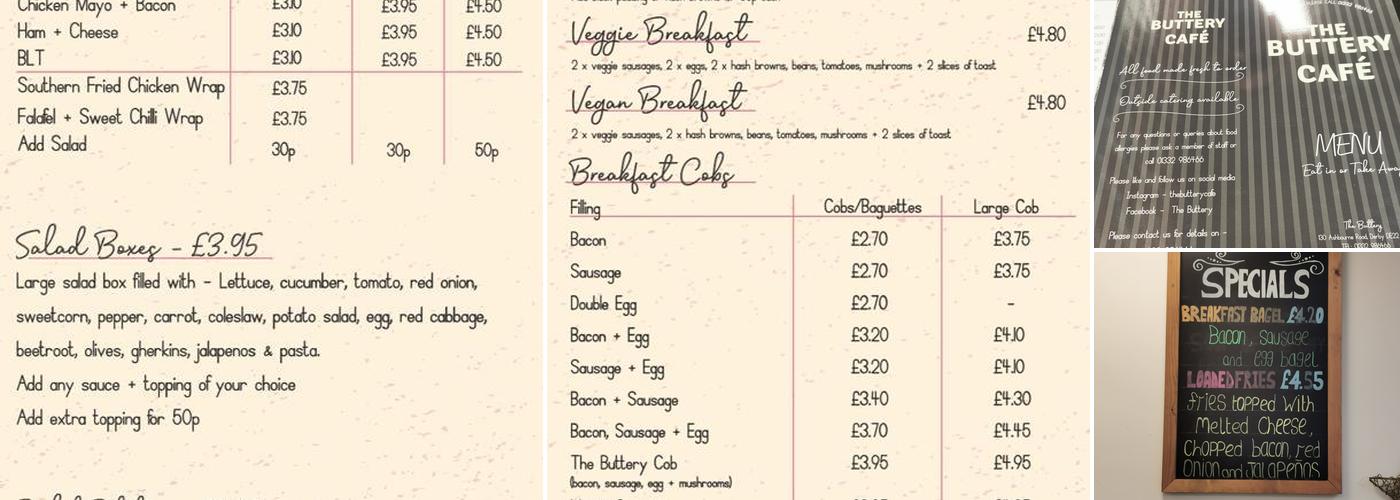 Chicken Mayo + Bacon £3.10 £3.95 £4.50
Ham + Cheese £3.10 £3.95 £4.50
BLT £3.10 £3.95 £4.50
Southern Fried Chicken Wrap £3.75
Falafel + Sweet Chilli Wrap £3.75
Add Salad 30p 30p 50p
Salad Boxes - £3.95
Large salad box filled with - Lettuce, cucumber, tomato, red onion,
sweetcorn, pepper, carrot, coleslaw, potato salad, egg, red cabbage,
beetroot, olives, gherkins, jalapenos & pasta.
Add any sauce + topping of your choice
Add extra topping for 50p
Veggie Breakfast £4.80
2 x veggie sausages, 2 x eggs, 2 x hash browns, beans, tomatoes, mushrooms + 2 slices of toast
Vegan Breakfast £4.80
2 x veggie sausages, 2 x hash browns, beans, tomatoes, mushrooms + 2 slices of toast
Breakfast Cobs
Filling Cobs/Baguettes Large Cob
Bacon £2.70 £3.75
Sausage £2.70 £3.75
Double Egg £2.70 -
Bacon + Egg £3.20 £4.10
Sausage + Egg £3.20 £4.10
Bacon + Sausage £3.40 £4.30
Bacon, Sausage + Egg £3.70 £4.45
The Buttery Cob £3.95 £4.95
(bacon, sausage, egg + mushrooms)
THE
BUTTERY
CAFÉ
All food made fresh to order
Outside catering available
For any questions or queries about food
allergies please ask a member of staff or
call 01332 986466
Please like and follow us on social media
Instagram - thebutterycafe
Facebook - The Buttery
Please contact us for details on -
THE
BUTTERY
CAFÉ
MENU
Eat in or Take
The Buttery
130 Ashbourne Road, Derby DE22
SPECIALS
BREAKFAST BAGEL £4.20
Bacon, sausage
and egg bagel
LOADED FRIES £4.55
fries topped with
Melted Cheese,
Chopped bacon, red
Onion and JALAPEÑOS